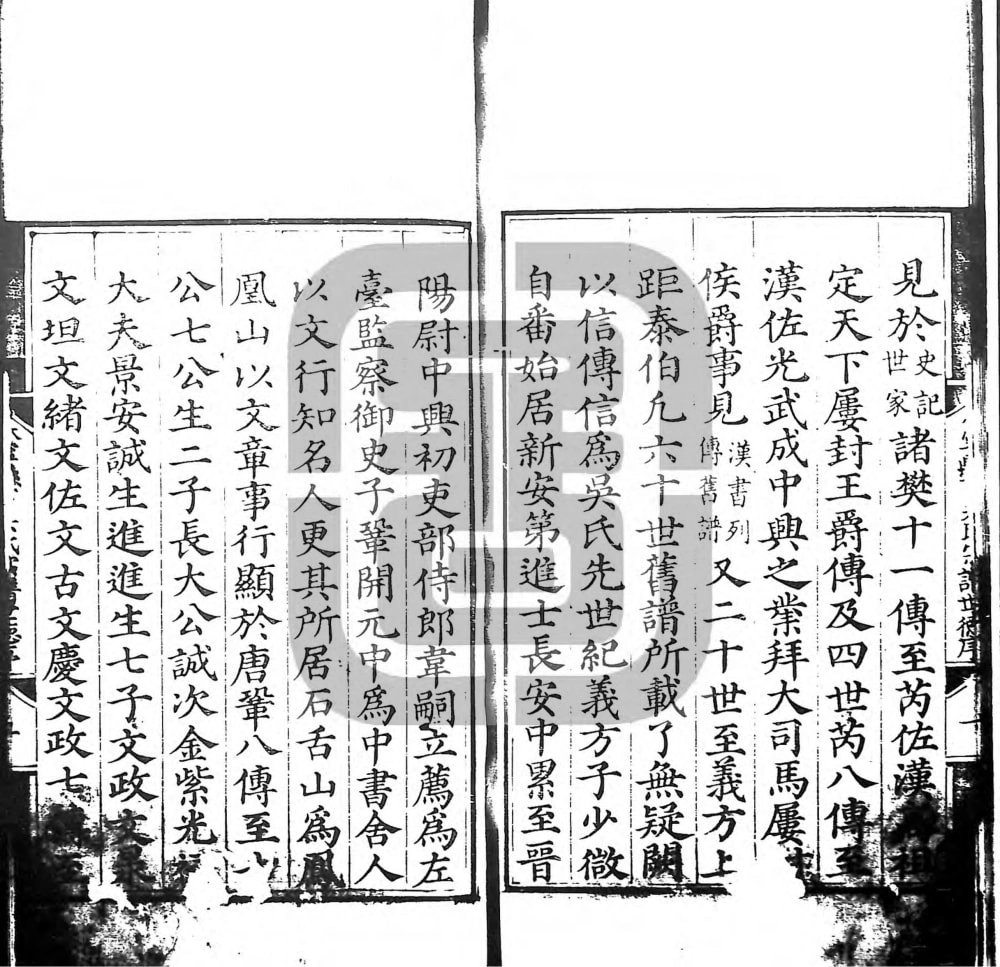 見於史記世家諸樊十一傳至芮佐漢祖
定天下屢封王爵傳及四世芮八傳至
漢佐光武成中興之業拜大司馬屢
侯爵事見漢書列傳舊譜又二十世至義方上
距泰伯凡六十世舊譜所載了無疑闕
以信傳信為吳氏先世紀義方子少微
自番始居新安第進士長安中累至晉
陽尉中興初吏部侍郎韋嗣立薦為左
臺監察御史子鞏開元中為中書舍人
以文行知名人更其所居石舌山為鳳
凰山以文章事行顯於唐鞏八傳至
公七公生二子長大公誠次金紫光
大夫景安誠生進進生七子文政文
文坦文緒文佐文古文慶文政七至